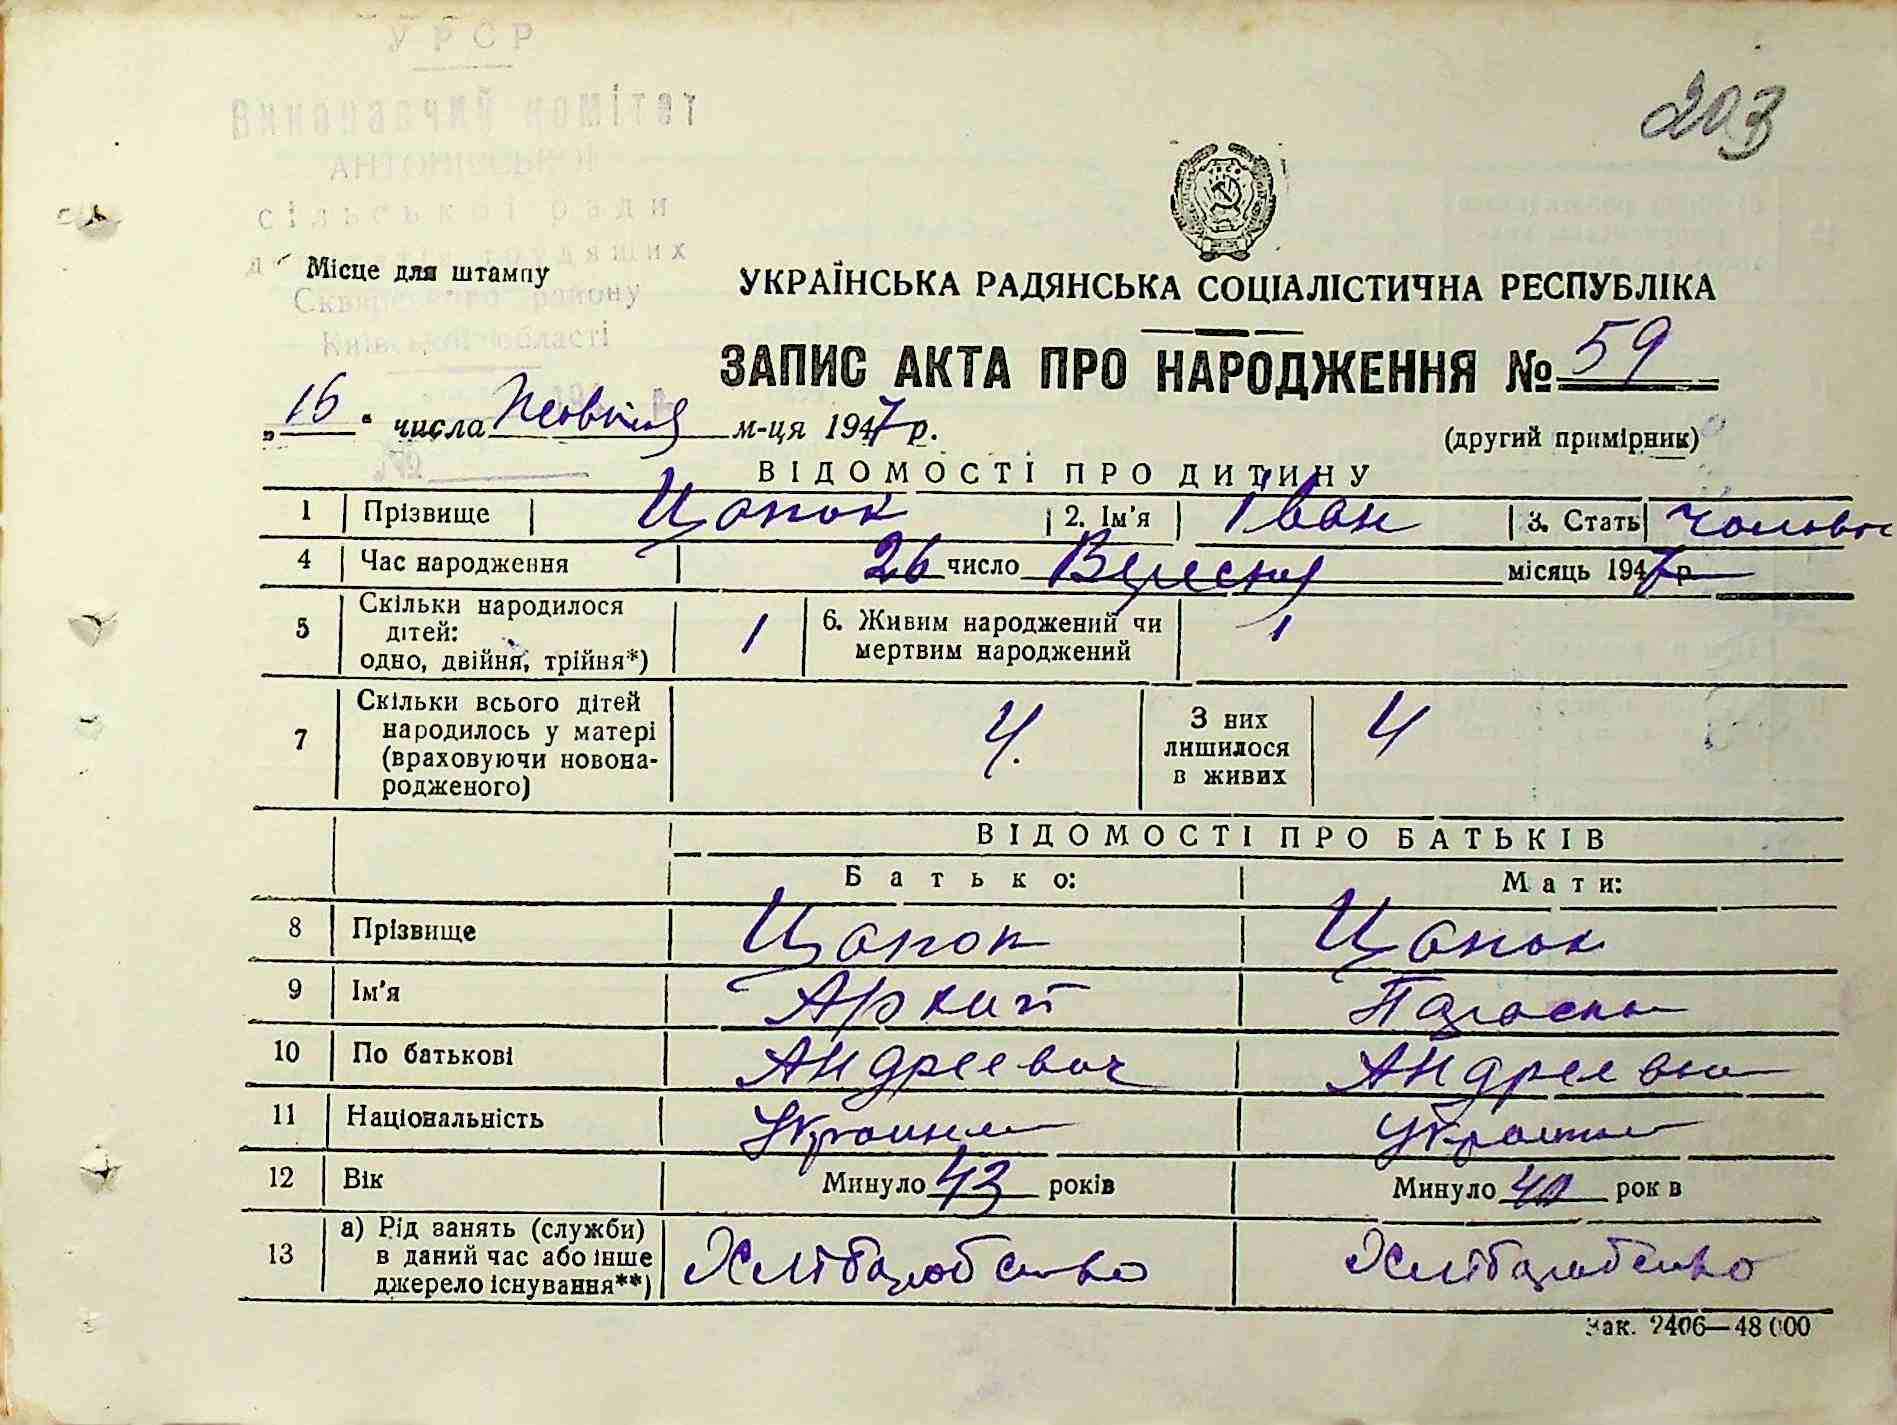 УРСР
203
Виконавчий комітет
АНТОНІВСЬКОЇ
сільської ради
депутатів трудящих
Місце для штампу
Сквирського району
УКРАЇНСЬКА РАДЯНСЬКА СОЦІАЛІСТИЧНА РЕСПУБЛІКА
Київської області
ЗАПИС АКТА ПРО НАРОДЖЕННЯ № 59
„16“ числа Жовтня м-ця 1947 р.
(другий примірник)
ВІДОМОСТІ ПРО ДИТИНУ
1 Прізвище Цопок 2. Ім'я Іван 3. Стать Чоловіч
4 Час народження 26 число Вересня місяць 1947 р
5 Скільки народилося дітей: одно, двійня, трійня*) 1 6. Живим народжений чи мертвим народжений 1
7 Скільки всього дітей народилось у матері (враховуючи новонародженого) 4. З них лишилося в живих 4
ВІДОМОСТІ ПРО БАТЬКІВ
Батько: Мати:
8 Прізвище Цопок Цопок
9 Ім'я Архип Параска
10 По батькові Андреевич Андреевна
11 Національність
12 Вік Минуло 43 років Минуло 40 рок в
13 а) Рід занять (служби) в даний час або інше джерело існування**) Хліборобство Хліборобство
Зак. 2406—48 000